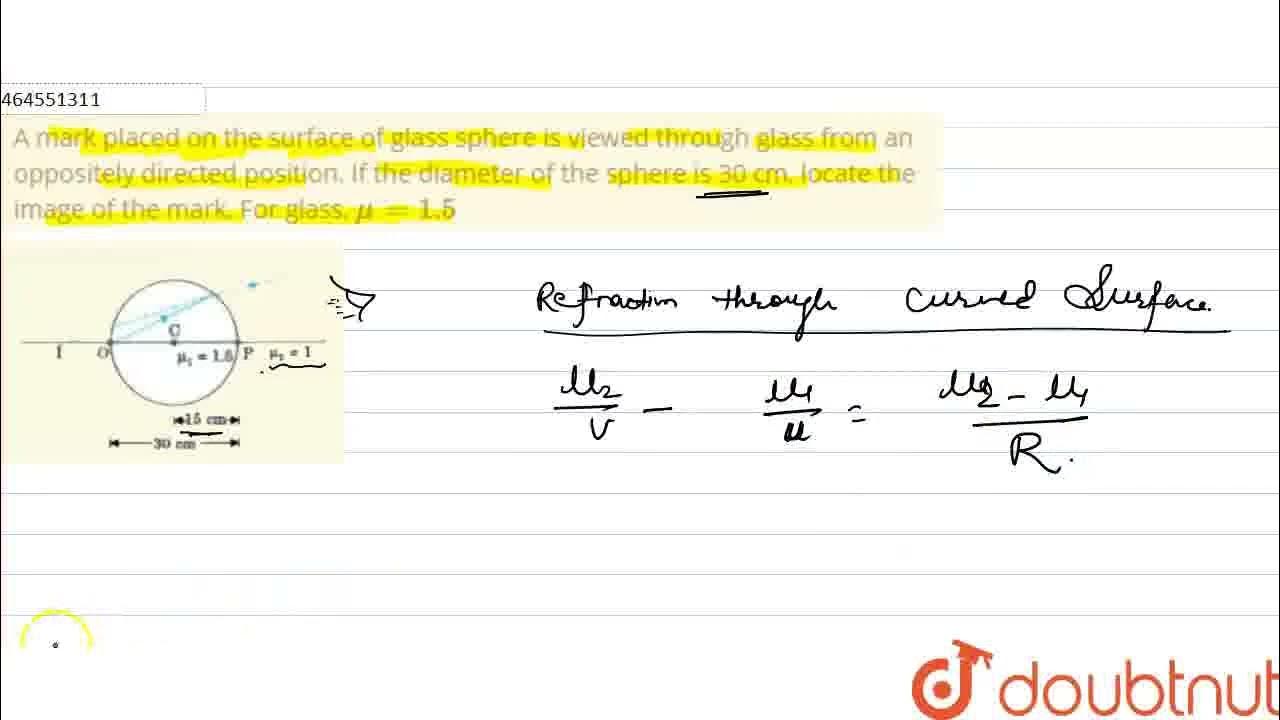 464551311
A mark placed on the surface of glass sphere is viewed through glass from an
oppositely directed position. If the diameter of the sphere is 30 cm, locate the
image of the mark. For glass, μ = 1.5
C
I O μ₁ = 1.5 P μ₂ = 1
15 cm
30 cm
Refraction through curved Surface.
μ₂/v - μ₁/u = μ₂ - μ₁/R.
doubtnut